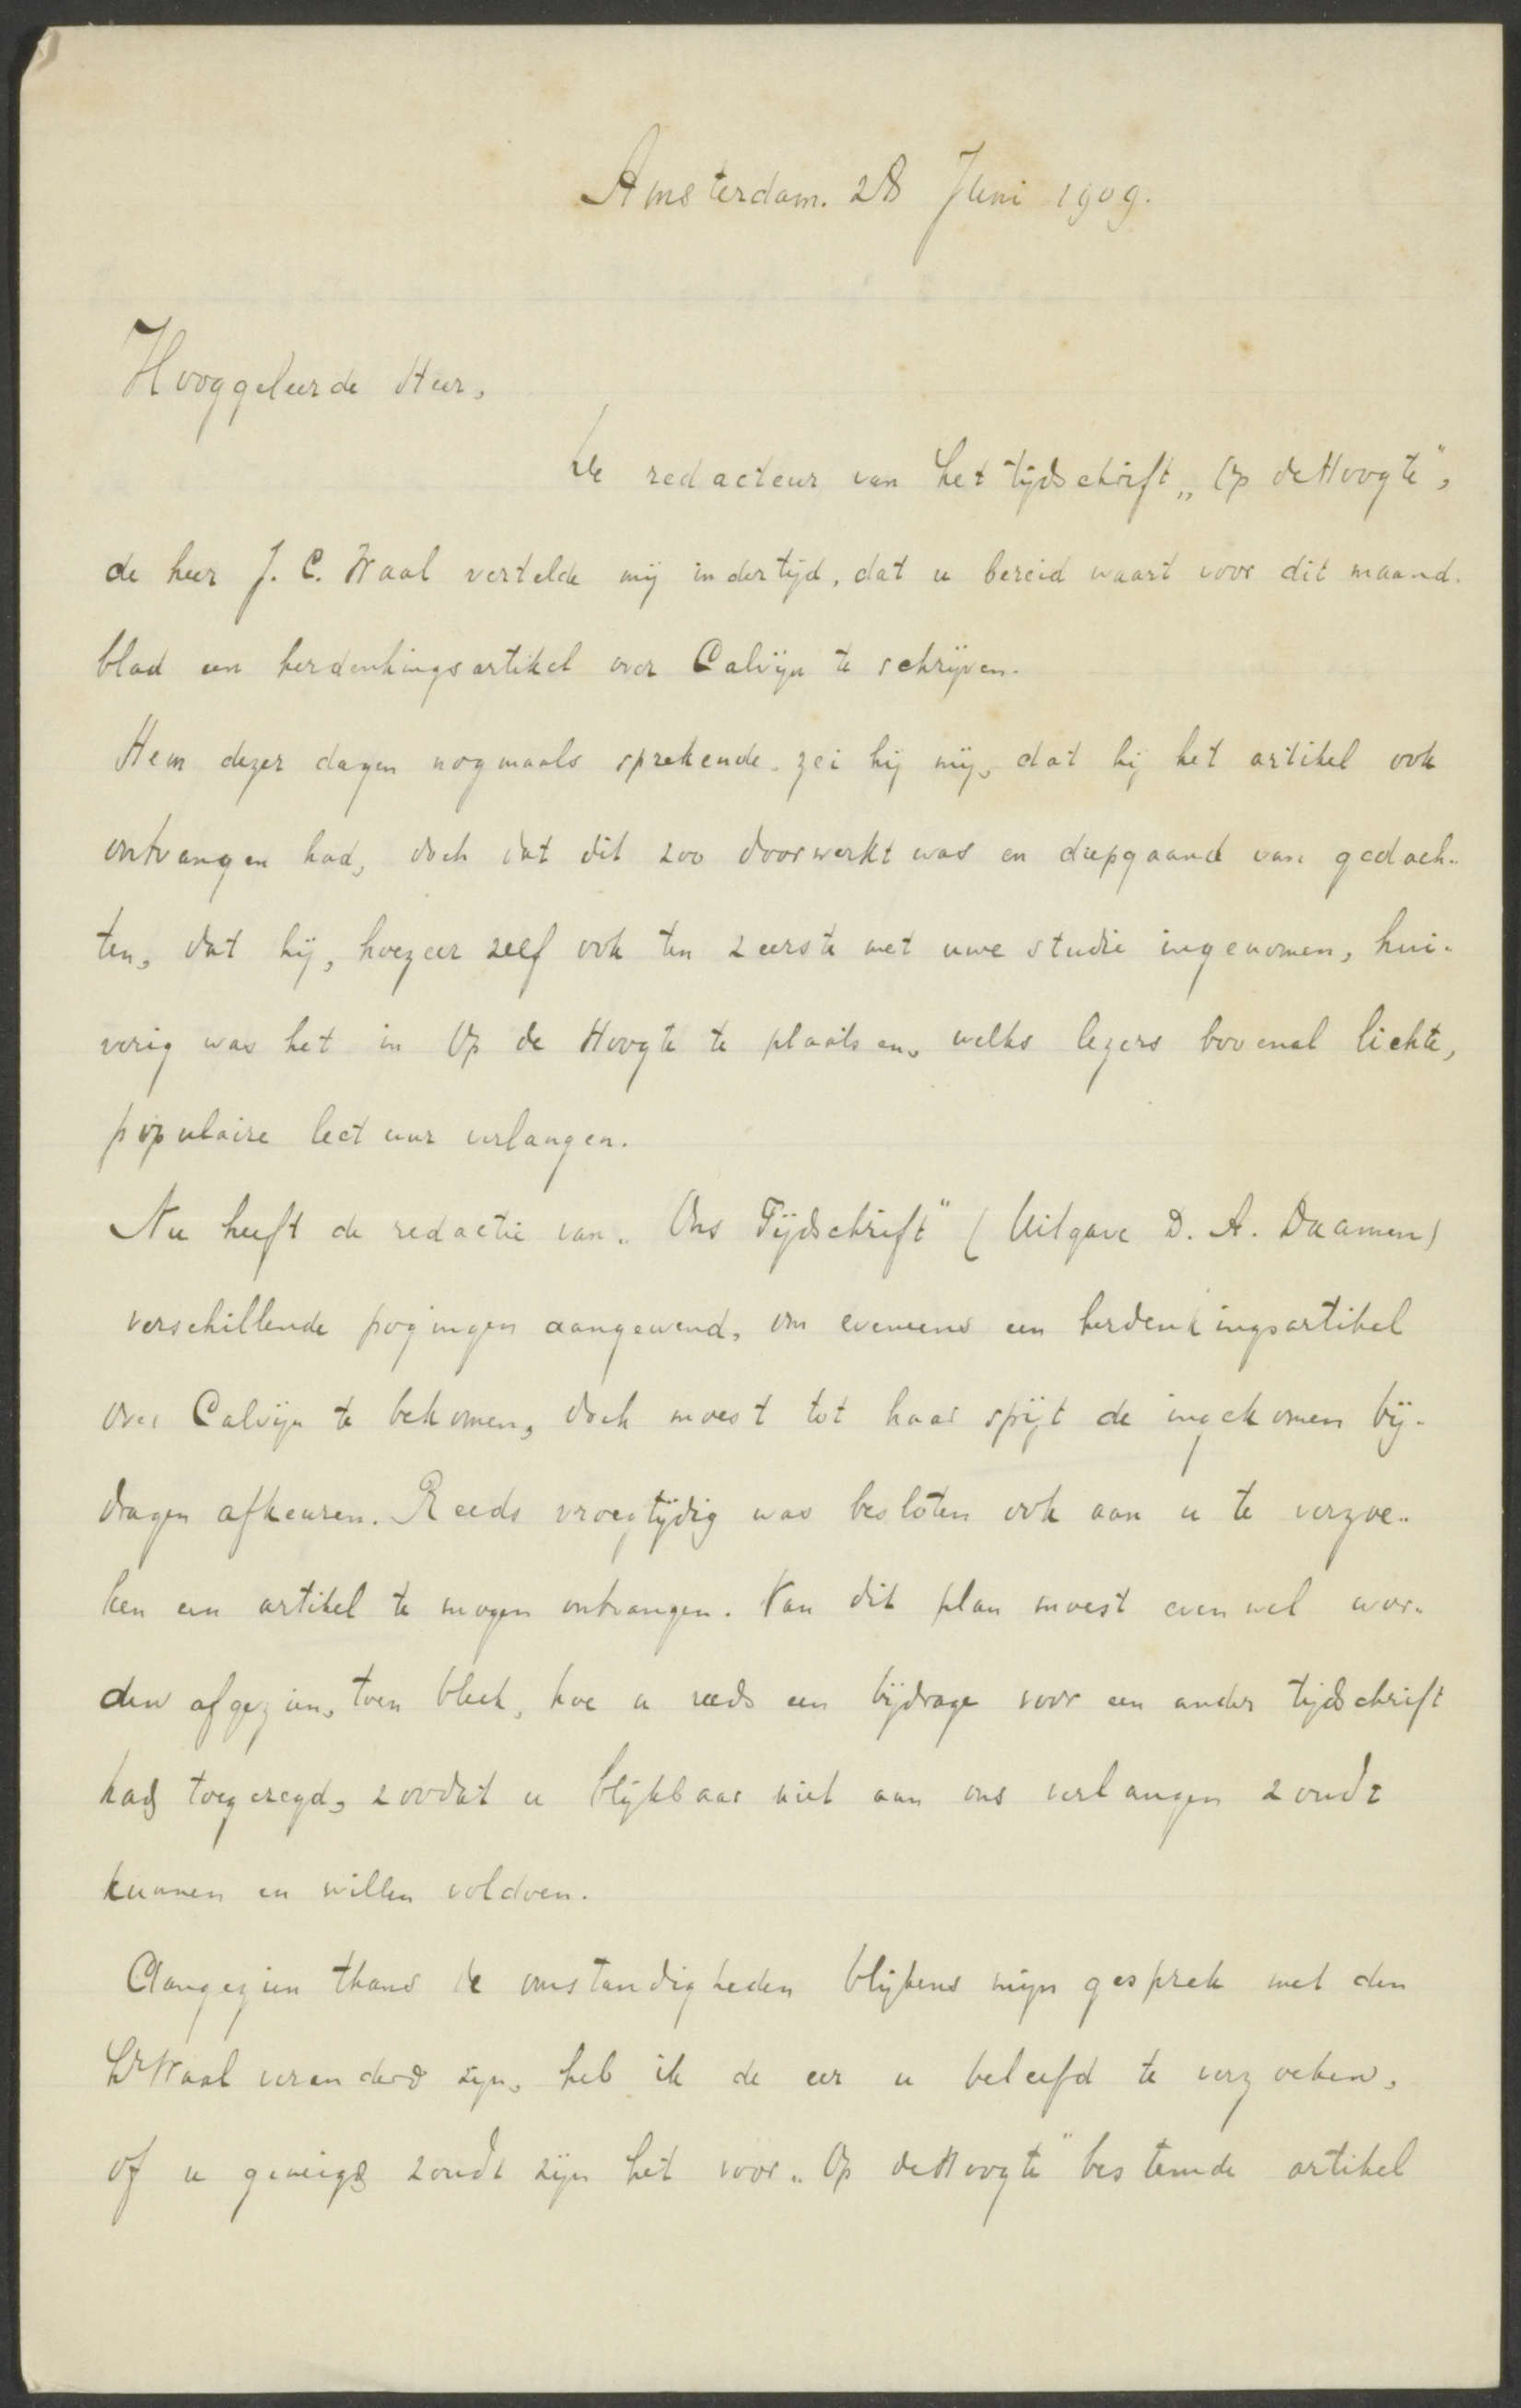 Amsterdam. 28 Juni 1909.
Hooggeleerde Heer,
De redacteur van het tijdschrift „Op de Hoogte",
de heer J. C. Waal vertelde mij indertijd, dat u bereid waart voor dit maand-
blad een herdenkingsartikel over Calvijn te schrijven.
Hem dezer dagen nogmaals sprekende, zei hij mij, dat hij het artikel ook
ontvangen had, doch dat dit zoo doorwerkt was en diepgaand van gedach-
ten, dat hij, hoezeer zelf ook ten zeerste met uwe studie ingenomen, hui-
verig was het in Op de Hoogte te plaatsen, welks lezers bovenal lichte,
populaire lectuur verlangen.
Nu heeft de redactie van „Ons Tijdschrift" (Uitgave D. A. Daamen)
verschillende pogingen aangewend, om eveneens een herdenkingsartikel
over Calvijn te bekomen, doch moest tot haar spijt de ingekomen bij-
dragen afkeuren. Reeds vroegtijdig was besloten ook aan u te verzoe-
ken een artikel te mogen ontvangen. Van dit plan moest evenwel wor-
den afgezien, toen bleek, hoe u reeds een bijdrage voor een ander tijdschrift
had toegezegd, zoodat u blijkbaar niet aan ons verlangen zoudt
kunnen en willen voldoen.
Aangezien thans de omstandigheden blijkens mijn gesprek met den
Hr Waal veranderd zijn, heb ik de eer u beleefd te verzoeken,
of u geneigd zoudt zijn het voor „Op de Hoogte" bestemde artikel